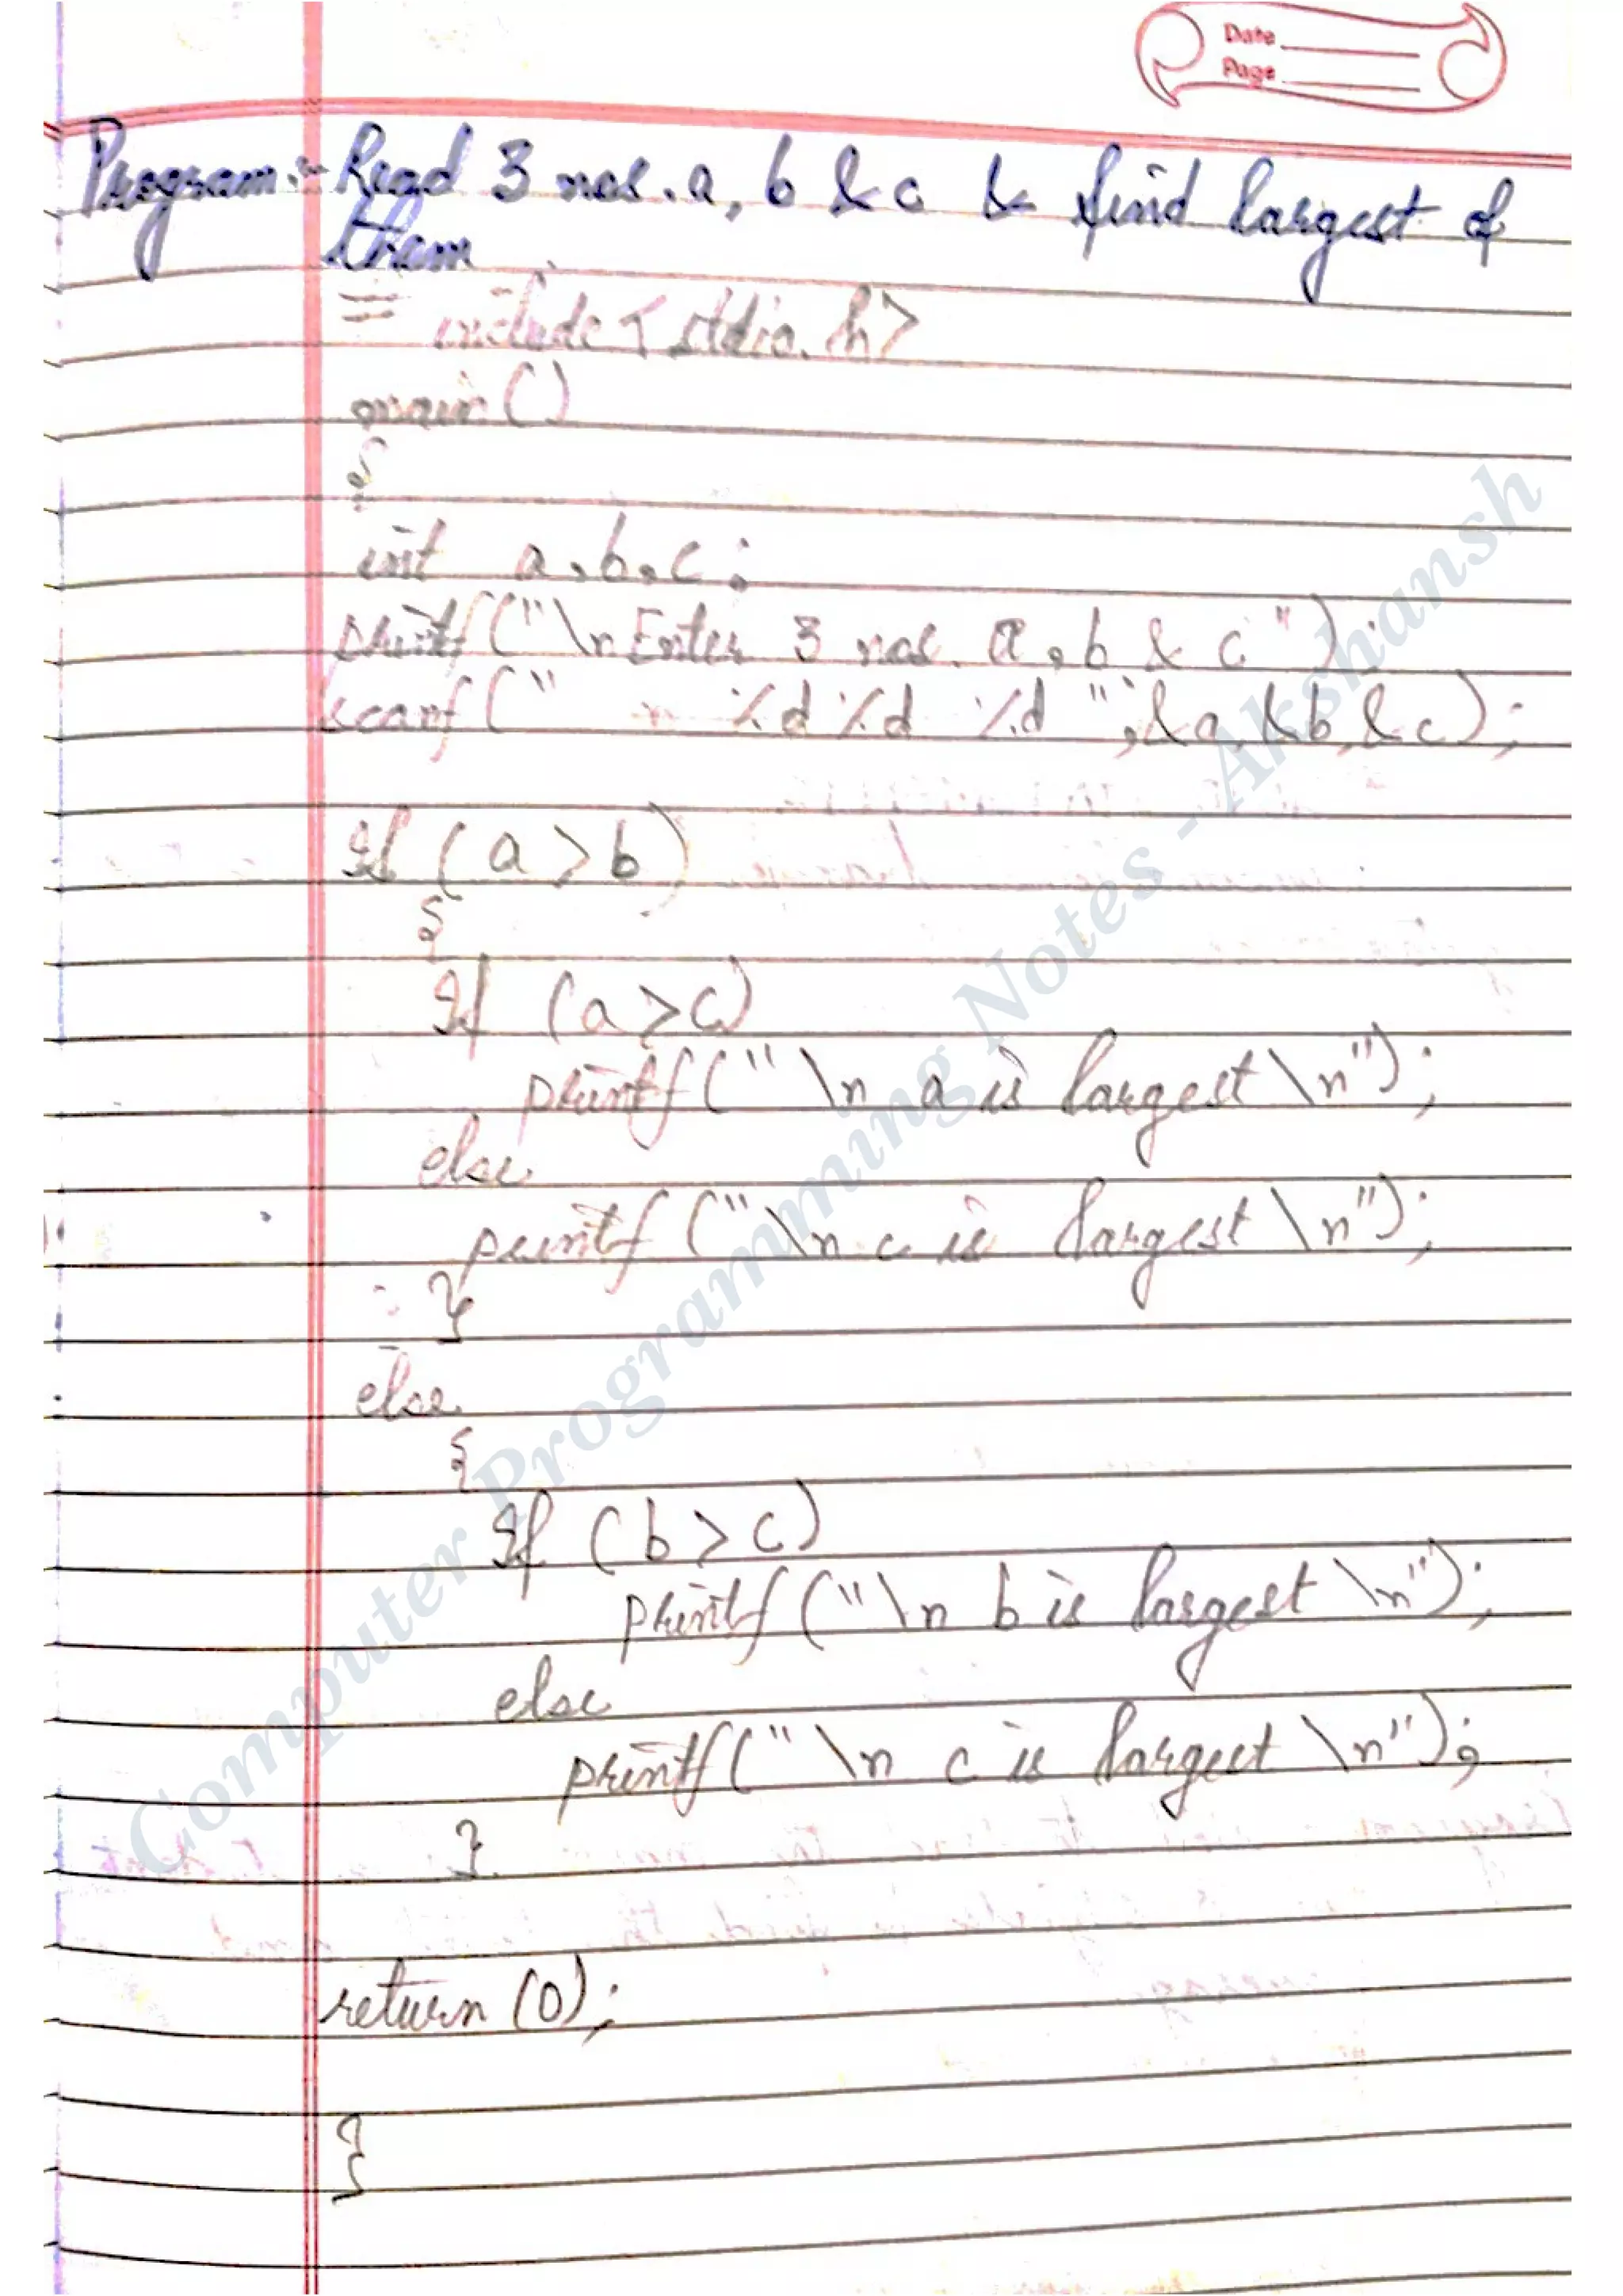 Date
Page
Program:- Read 3 nos. a, b & c & find largest of
them
= include <stdio.h>
main()
{
int a,b,c;
printf("\nEnter 3 nos. a,b & c");
scanf(" %d %d %d ",&a,&b,&c);
If (a>b)
{
If (a>c)
printf("\n a is largest \n");
else
printf("\n c is largest \n");
}
else
{
If (b>c)
printf("\n b is largest \n");
else
printf("\n c is largest \n");
}
return (0);
}
Computer Programming Notes - Akshansh